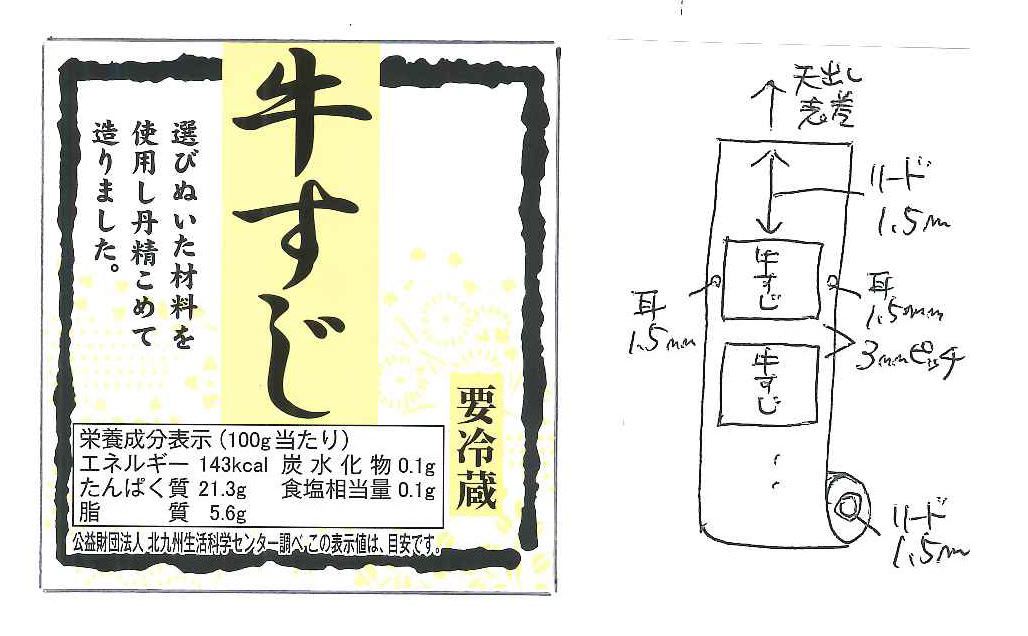 牛すじ
選びぬいた材料を
使用し丹精こめて
造りました。
要冷蔵
栄養成分表示(100g当たり)
エネルギー 143kcal 炭水化物 0.1g
たんぱく質 21.3g 食塩相当量 0.1g
脂質 5.6g
公益財団法人 北九州生活科学センター調べ、この表示値は、目安です。
天出し
表巻
リード
1.5m
牛すじ
耳
1.5mm
耳
1.5mm
3mmピッチ
牛すじ
リード
1.5m